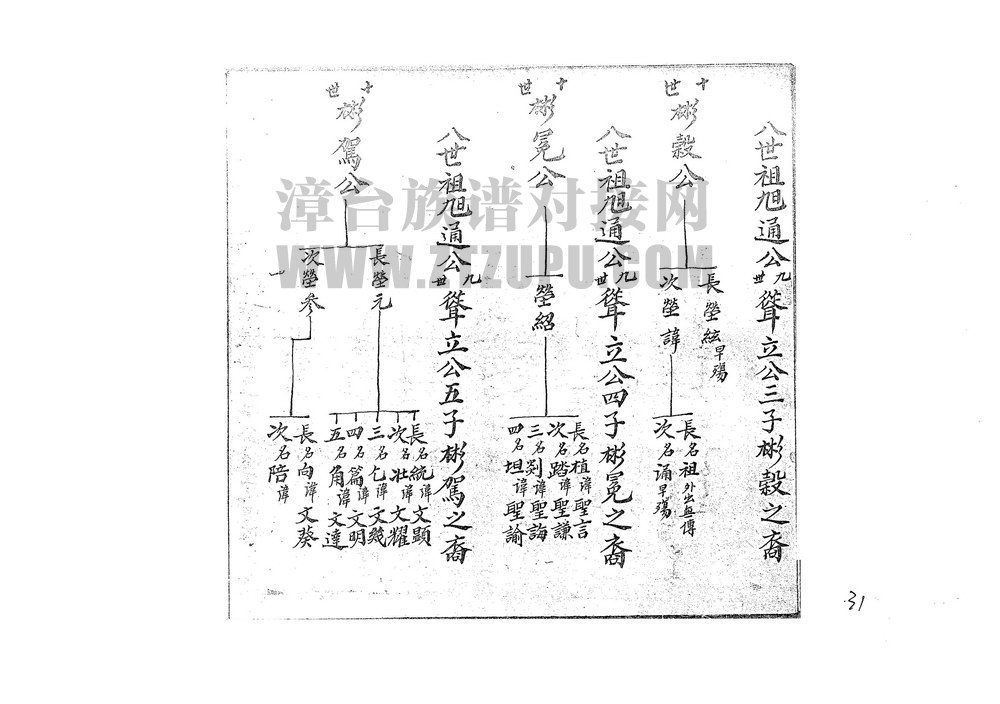 八世祖旭通公九世聳立公三子彬穀之裔
十世彬穀公
長瑩絃早殤
次瑩諱
長名祖外出無傳
次名涌早殤
八世祖旭通公九世聳立公四子彬冕之裔
十世彬冕公
瑩紹
長名植諱聖言
次名踏諱聖謙
三名剡諱聖誨
四名坦諱聖諭
八世祖旭通公九世聳立公五子彬駕之裔
十世彬駕公
長瑩元
次瑩參
長名統諱文顯
次名壯諱文耀
三名乞諱文幾
四名篇諱文明
五名角諱文達
長名向諱文葵
次名陪諱
漳台族谱对接网
WWW.ZTZUPU.COM
31